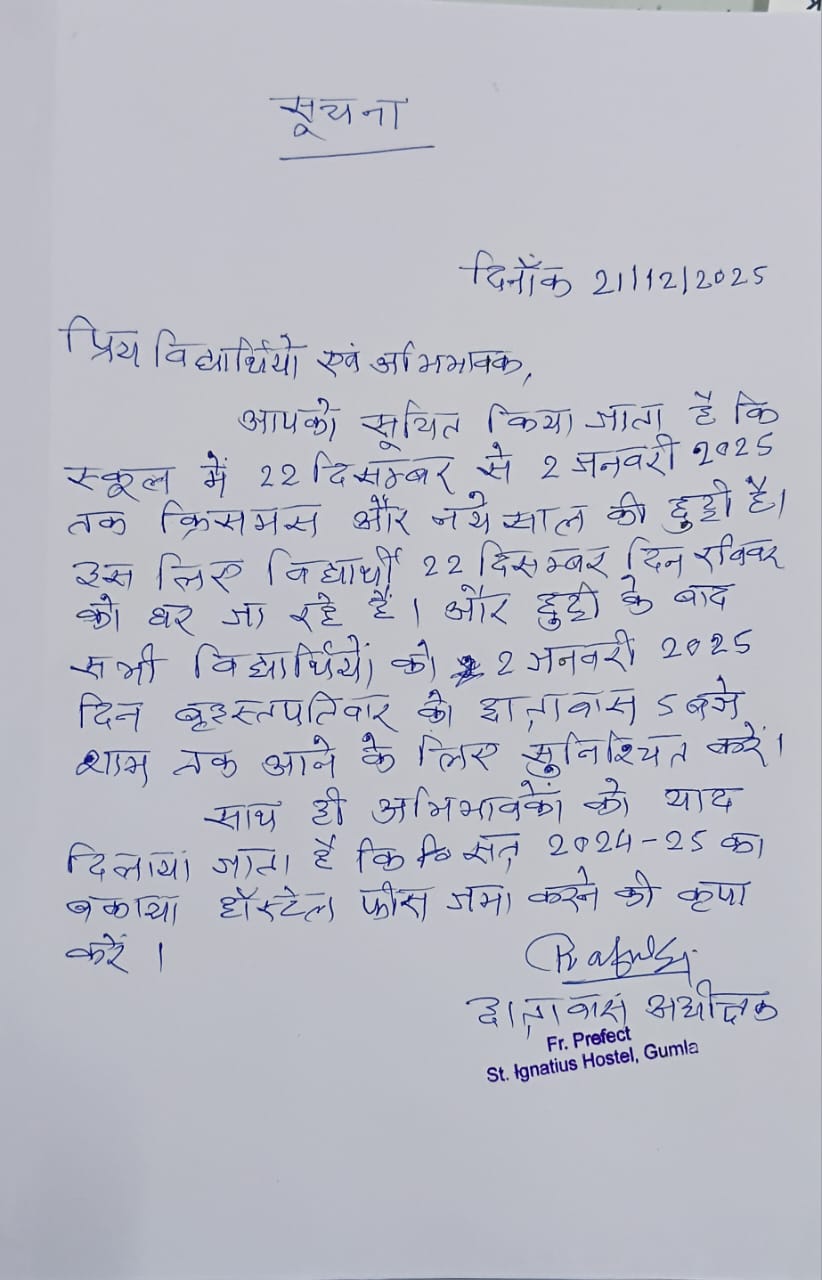 सूचना
दिनाँक 21/12/2025
प्रिय विद्यार्थियो एवं अभिभावक,
आपको सूचित किया जाता है कि
स्कूल में 22 दिसम्बर से 2 जनवरी 2025
तक क्रिसमस और नये साल की छुट्टी है।
इस लिए विद्यार्थी 22 दिसम्बर दिन रविवर
को घर जा रहे हैं। और छुट्टी के बाद
सभी विद्यार्थियों को 2 जनवरी 2025
दिन बृहस्तपतिवार को छात्रावास 5 बजे
शाम तक आने के लिए सुनिश्चित करें।
साथ ही अभिभावकों को याद
दिलाया जाता है कि सत्र 2024-25 का
बकाया हॉस्टेल फीस जमा करने की कृपा
करें।
छात्रावास अधीक्षक
Fr. Prefect
St. Ignatius Hostel, Gumla